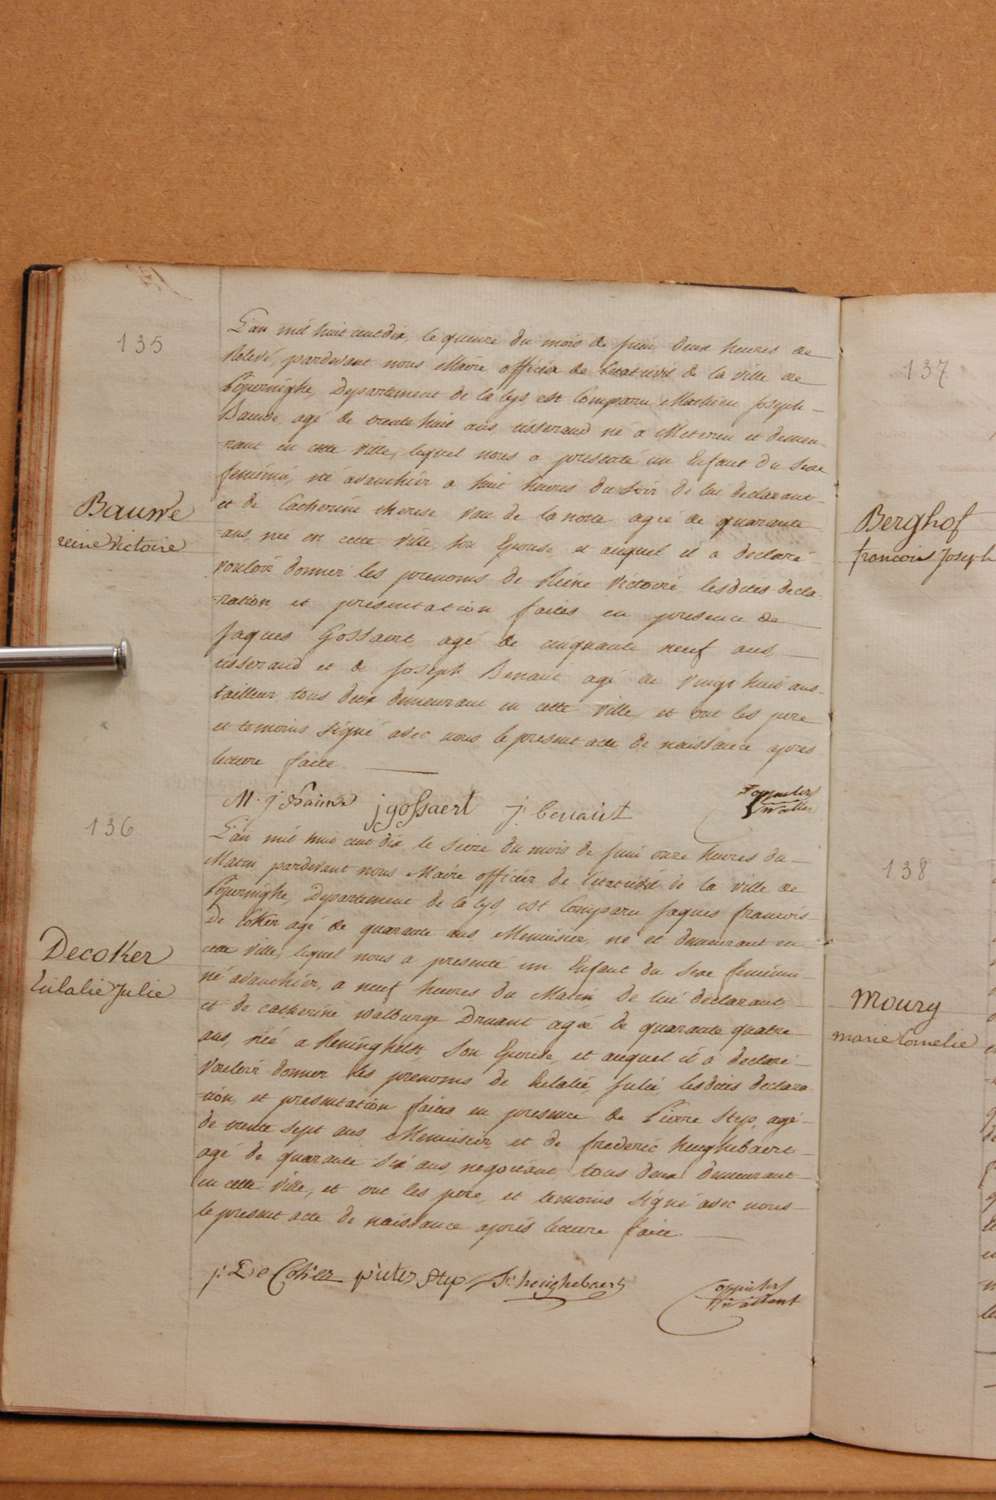 135
Baume
reine Victoire
L'an mil huit cent dix, le quinze du mois de juin, deux heures de
relevé, pardevant nous Maire officier de l'etat civil de la ville de
Poperinghe, Departement de la lys est comparu, Mathieu Joseph
Baume, agé de trente huit ans, tisserand né a Meteren et demeu-
-rant en cette ville, lequel nous a presenté un Enfant du Sexe
feminin, né avanthier a huit heures du soir de lui declarant
et de Catherine therese Van de la notte agée de quarante
ans, née en cette ville, son Epouse, et auquel il a declaré
vouloir donner les prenoms de Reine Victoire, lesdites decla-
-ration et presentation faites en presence de
Jaques Gossaert, agé de cinquante neuf ans
tisserand et de Joseph Benaut agé de vingt huit ans
tailleur tous deux demeurant en cette ville, et ont les pere
et temoins signé avec nous le present acte de naissance apres
lecture faite
M. j Baume j gossaert j. benaut
136
Decoker
Eulalie Julie
L'an mil huit cent dix, le seize du mois de juin onze heures du
Matin pardevant nous Maire officier de l'etat civil de la ville de
Poperinghe, Departement de la lys, est comparu Jaques francois
De Coker agé de quarante ans Menuisier, né et demeurant en
cette ville, lequel nous a presenté un Enfant du Sexe feminin
né avanthier, a neuf heures du Matin de lui declarant
et de catherine walburge Druant agée de quarante quatre
ans, née a Reninghelst, son Epouse, et auquel il a declaré
vouloir donner les prenoms de Eulalie Julie lesdites declara-
-tion, et presentation faites en presence de Pierre Step, agé
de trente sept ans, Menuisier, et de frederic heughebaert
agé de quarante six ans, negociant, tous deux demeurant
en cette ville, et ont les pere, et temoins signé avec nous
le present acte de naissance après lecture faite
j: De Coker pieter Step heughebaert
137
Berghof
francois Joseph
138
Moury
marie Cornelie